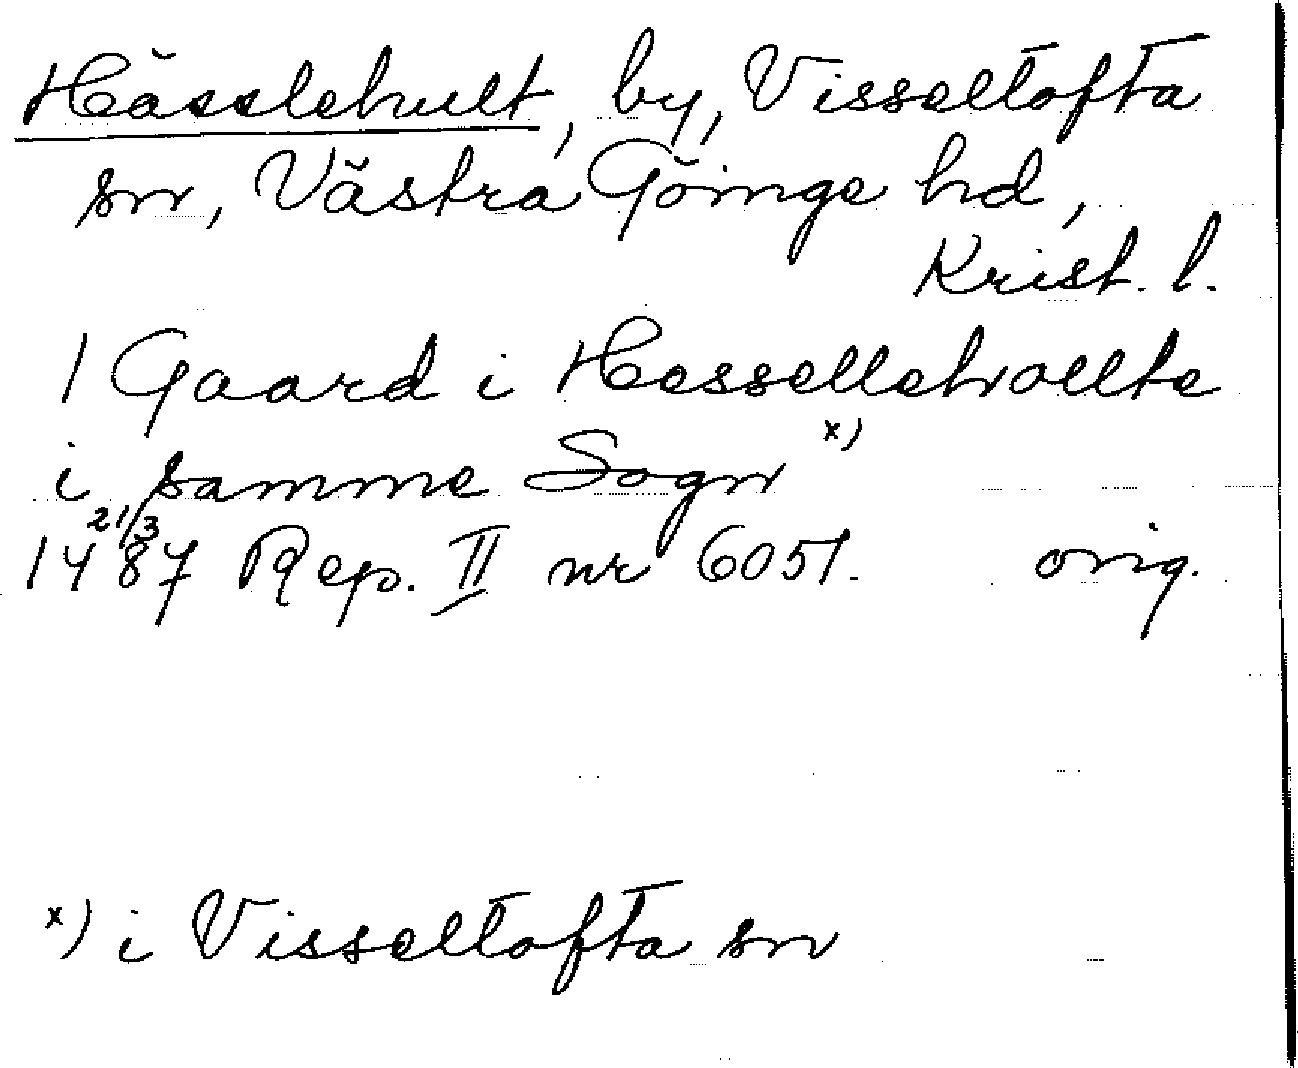 Hässlehult, by, Visseltofta
sn, Västra Göinge hd,
Krist. l.
1 Gaard i Hessellehollte
i samme Sogn x)
21/3
1487 Rep. II nr 6051. orig.
x) i Visseltofta sn